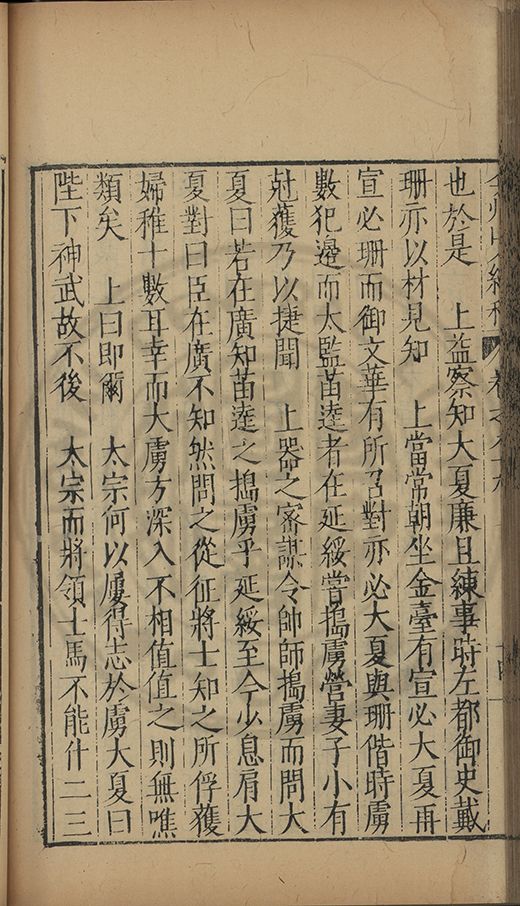 弇州山人續稿 卷之八十九 十四
也於是　上益察知大夏廉且練事時左都御史戴
珊亦以材見知　上當常朝坐金臺有宣必大夏再
宣必珊而御文華有所召對亦必大夏與珊偕時虜
數犯邊而太監苗逵者在延綏嘗搗虜營妻子小有
尅獲乃以捷聞　上器之密謀令帥師搗虜而問大
夏曰若在廣知苗逵之搗虜乎延綏至今少息肩大
夏對曰臣在廣不知然問之從征將士知之所俘獲
婦稚十數耳幸而大虜方深入不相值值之則無噍
類矣　上曰即爾　太宗何以屢得志於虜大夏曰
陛下神武故不後　太宗而將領士馬不能什二三